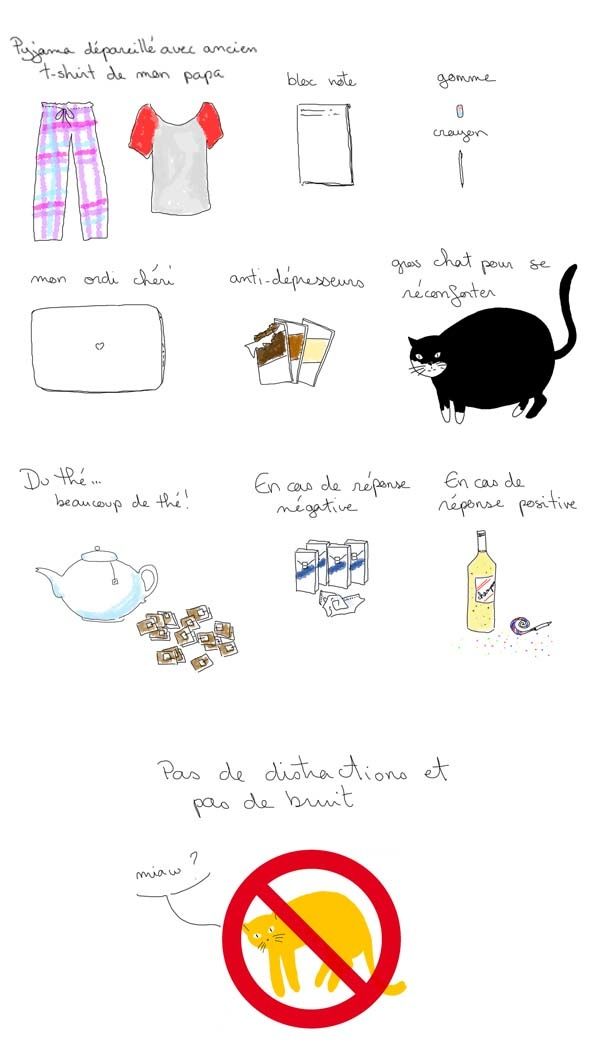 Pyjama dépareillé avec ancien
t-shirt de mon papa
bloc note
gomme
crayon
mon ordi chéri
anti-dépresseurs
gros chat pour se
réconforter
Du thé...
beaucoup de thé!
En cas de réponse
négative
En cas de
réponse positive
Pas de distractions et
pas de bruit
miaw ?